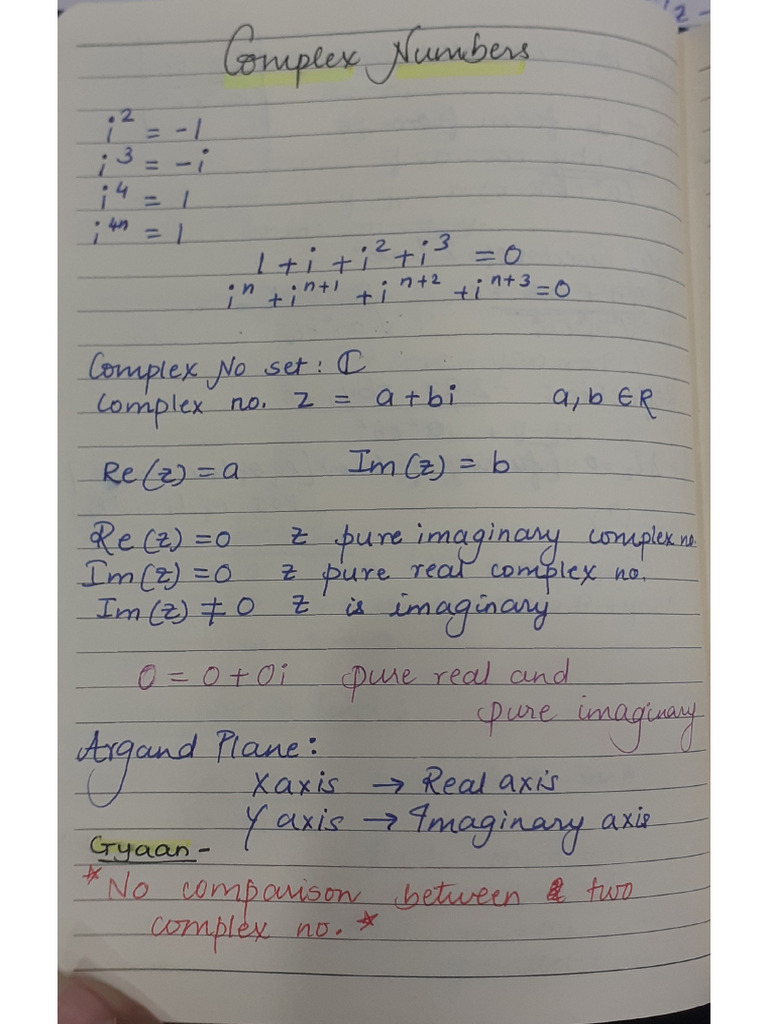 Complex Numbers
i² = -1
i³ = -i
i⁴ = 1
i⁴ⁿ = 1
1 + i + i² + i³ = 0
iⁿ + iⁿ⁺¹ + iⁿ⁺² + iⁿ⁺³ = 0
Complex No set : ℂ
Complex no. z = a + bi a, b ∈ R
Re(z) = a Im(z) = b
Re(z) = 0 z pure imaginary complex no.
Im(z) = 0 z pure real complex no.
Im(z) ≠ 0 z is imaginary
0 = 0 + 0i pure real and
pure imaginary
Argand Plane :
X axis → Real axis
Y axis → Imaginary axis
Gyaan -
* No comparison between two
complex no. *